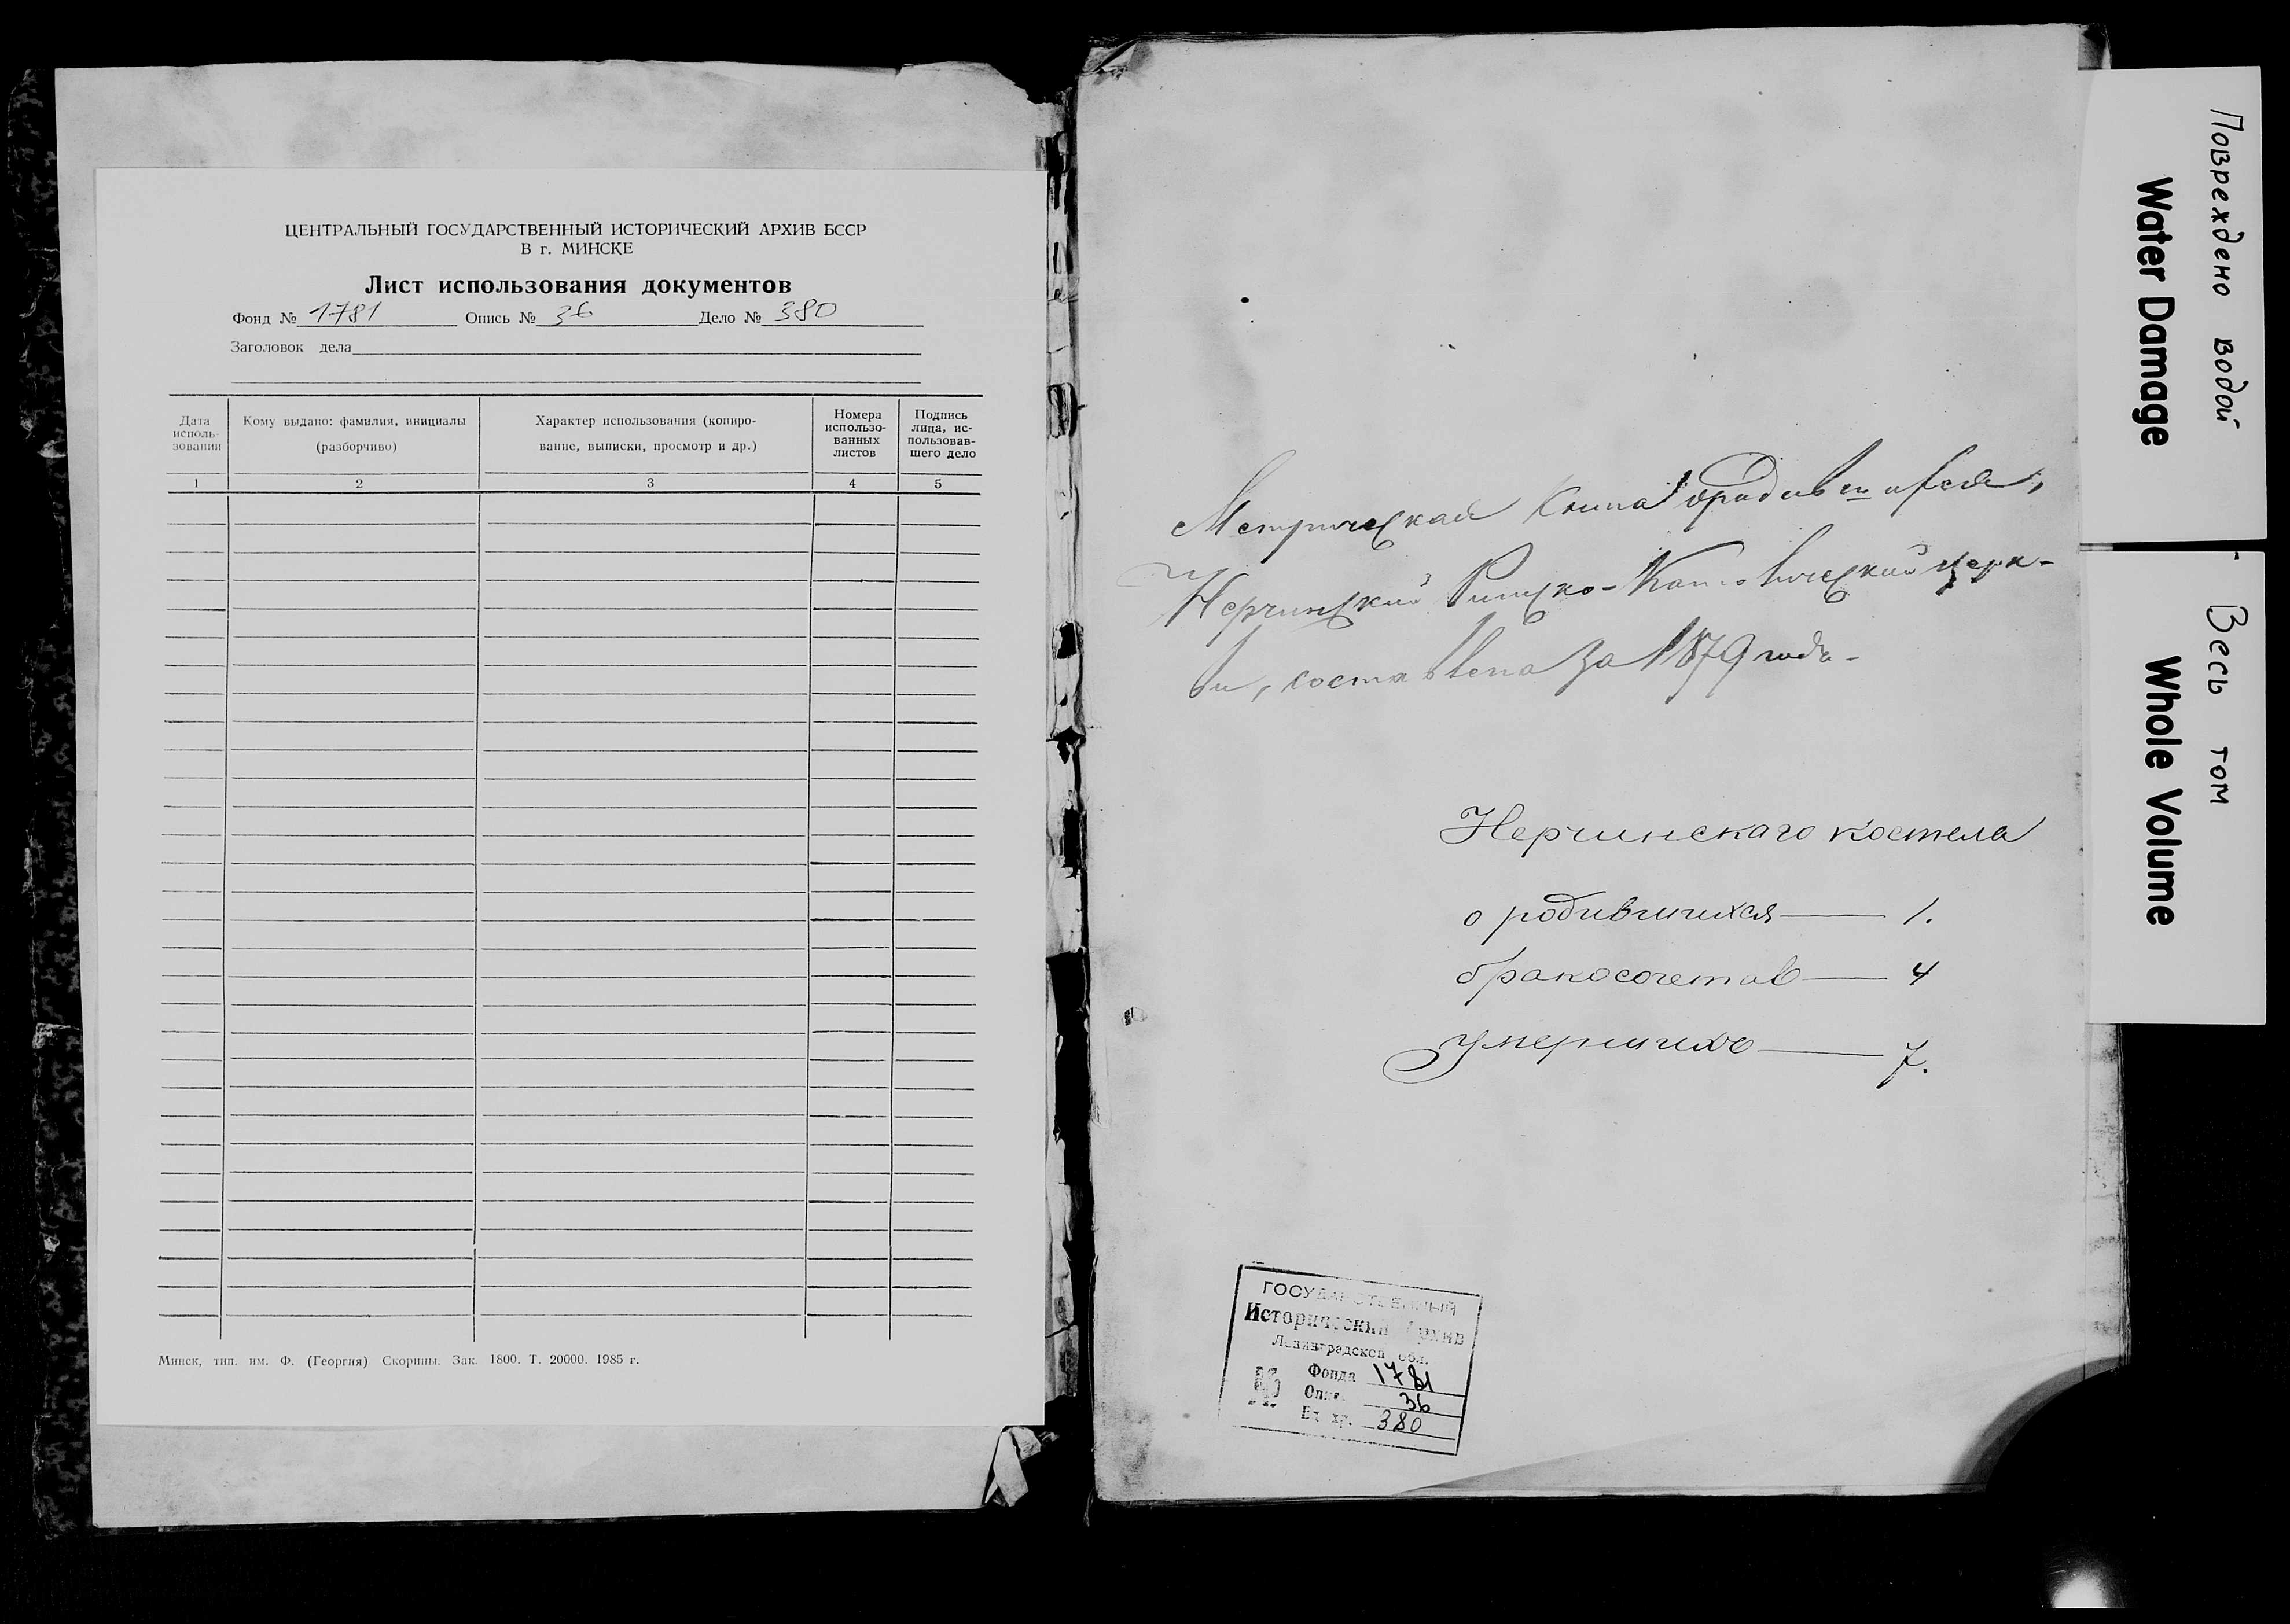 ЦЕНТРАЛЬНЫЙ ГОСУДАРСТВЕННЫЙ ИСТОРИЧЕСКИЙ АРХИВ БССР
В г. МИНСКЕ
Лист использования документов
Фонд № 1781 Опись № 36 Дело № 380
Заголовок дела
Дата использования
Кому выдано: фамилия, инициалы
(разборчиво)
Характер использования (копиро-
вание, выписки, просмотр и др.)
Номера
использо-
ванных
листов
Подпись
лица, ис-
пользовав-
шего дело
1 2 3 4 5
Минск, тип. им. Ф. (Георгия) Скорины. Зак. 1800. Т. 20000. 1985 г.
Метрическая Книга
Нерчинской Римско-Католической церк-
ви, составлена за 1879 годъ-
Нерчинскаго костела
о родившихся — 1.
бракосочетав — 4
умерших — 7.
ГОСУДАРСТВЕННЫЙ
Исторический Архив
Ленинградской обл.
Фонда 1781
Опись 36
Ед. хр. 380
Повреждено водой
Water Damage
Весь том
Whole Volume